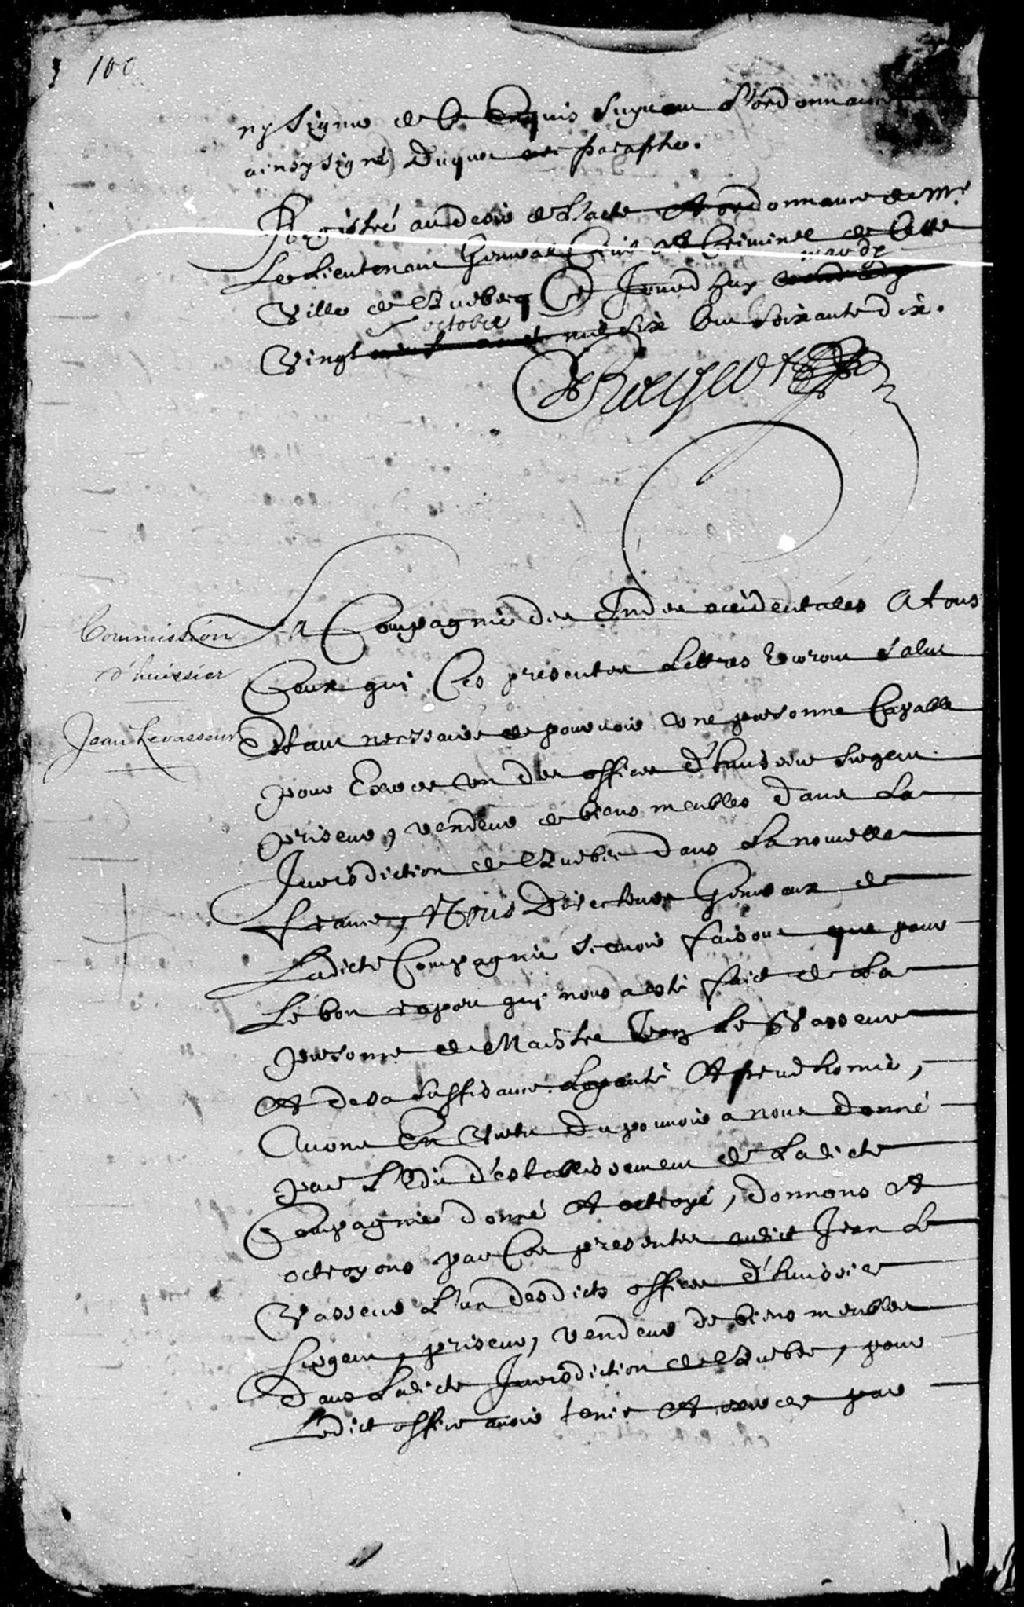 100
ny signer de ce Enquis suyvant L'ordonnance
ainsy signé, Duquet avec paraphe.
Registré au desir de L'acte et ordonnance de Mr
Le Lieutenant General Civil et Criminel de Cette
mardy
Ville de Quebecq Ce Jourd'huy
octobre
Vingt mil six Cen soixante dix.
La Compagnie des Indes occidentales A tous
Commission
d'huissier
Jean Levasseur
Ceux qui Ces presentes Lettres verront Salut
Estant necessaire de pourvoir une personne Capable
pour Exercer un des offices d'huissier sergent
priseur, vendeur de biens meubles dans La
Jurisdiction de Quebec dans La nouvelle
france, Nous Directeurs Generaux de
Ladicte Compagnie scavoir faisons que pour
Le bon raport qui nous a esté faict de La
personne de Maistre Jean Le Vasseur
Et de sa suffisance Loyauté Et preudhomie,
Avons En Vertu du pouvoir a nous donné
par L'Edit d'establissement de Ladicte
Compagnie donné Et octroyé, donnons Et
octroyons par Ces presentes audict Jean Le
Vasseur L'un desdicts offices d'huissier
sergent, priseur, vendeur de biens meubles
dans Ladicte Jurisdiction de Quebec, pour
Ledict office avoir tenir Et exercer par